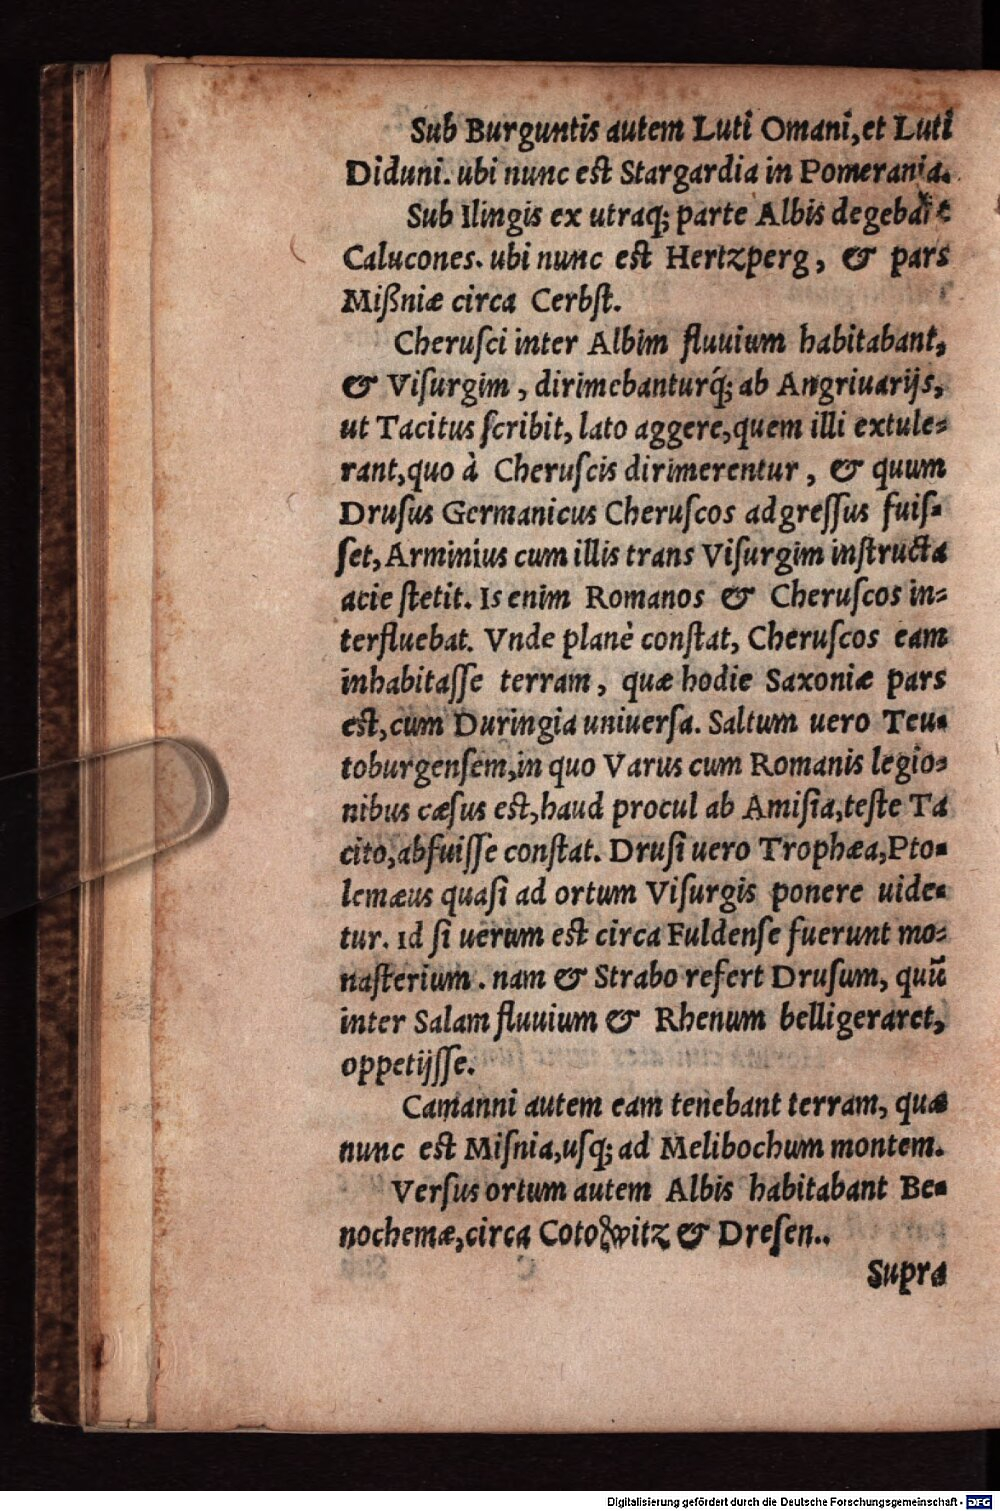 Sub Burguntis autem Luti Omani, et Luti
Diduni. ubi nunc est Stargardia in Pomerania.
Sub Ilingis ex utraq; parte Albis degebāt
Calucones. ubi nunc est Hertzperg, & pars
Mißniæ circa Cerbſt.
Cheruſci inter Albim fluuium habitabant,
& Viſurgim, dirimebanturq́; ab Angriuarijs,
ut Tacitus ſcribit, lato aggere, quem illi extule⸗
rant, quo à Cheruſcis dirimerentur, & quum
Druſus Germanicus Cheruſcos adgreſſus fuiſ⸗
ſet, Arminius cum illis trans Viſurgim inſtructa
acie ſtetit. Is enim Romanos & Cheruſcos in⸗
terfluebat. Vnde planè conſtat, Cheruſcos eam
inhabitaſſe terram, quæ hodie Saxoniæ pars
eſt, cum Duringia uniuerſa. Saltum uero Teu⸗
toburgenſem, in quo Varus cum Romanis legio⸗
nibus cæſus eſt, haud procul ab Amiſia, teſte Ta
cito, abfuiſſe conſtat. Druſi uero Trophæa, Pto⸗
lemæus quaſi ad ortum Viſurgis ponere uide⸗
tur. id ſi uerum eſt circa Fuldenſe fuerunt mo⸗
naſterium. nam & Strabo refert Druſum, quū
inter Salam fluuium & Rhenum belligeraret,
oppetijſſe.
Camanni autem eam tenebant terram, quæ
nunc eſt Miſnia, uſq; ad Melibochum montem.
Verſus ortum autem Albis habitabant Be⸗
nochemæ, circa Cotoſwitz & Dreſen..
Supra
Digitalisierung gefördert durch die Deutsche Forschungsgemeinschaft - DFG